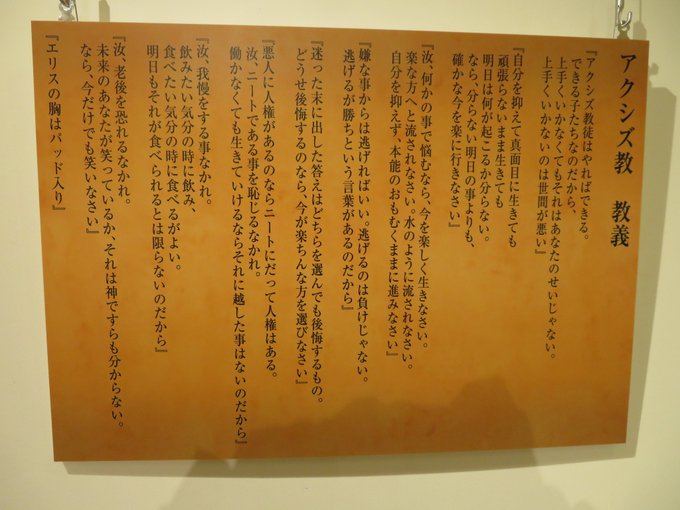 アクシズ教　教義
『アクシズ教徒はやればできる。
できる子たちなのだから、
上手くいかなくてもそれはあなたのせいじゃない。
上手くいかないのは世間が悪い』
『自分を抑えて真面目に生きても
頑張らないまま生きても
明日は何が起こるか分からない。
なら、分らない明日の事よりも、
確かな今を楽に行きなさい』
『汝、何かの事で悩むなら、今を楽しく生きなさい。
楽な方へと流されなさい。水のように流されなさい。
自分を抑えず、本能のおもむくままに進みなさい』
『嫌な事からは逃げればいい。逃げるのは負けじゃない。
逃げるが勝ちという言葉があるのだから』
『迷った末に出した答えはどちらを選んでも後悔するもの。
どうせ後悔するのなら、今が楽ちんな方を選びなさい』
『悪人に人権があるのならニートにだって人権はある。
汝、ニートである事を恥じるなかれ。
働かなくても生きていけるならそれに越した事はないのだから』
『汝、我慢をする事なかれ。
飲みたい気分の時に飲み、
食べたい気分の時に食べるがよい。
明日もそれが食べられるとは限らないのだから』
『汝、老後を恐れるなかれ。
未来のあなたが笑っているか、それは神ですらも分からない。
なら、今だけでも笑いなさい』
『エリスの胸はパッド入り』